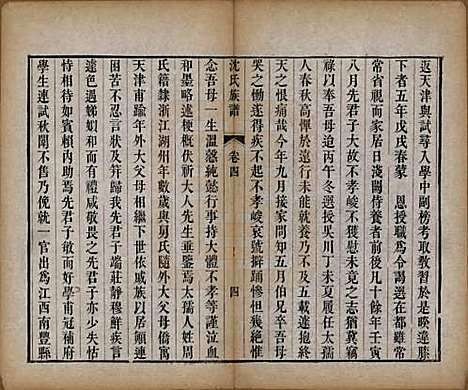 返天津與試尋入學中副榜考取教習於是暌違膝
下者五年戊戌春蒙　恩授職為令謁選在都雖常
常省視而家居日淺闕侍養者前後凡十餘年是年
八月先君子大故不孝峻罪莫可逭未竟之志猶冀
祿以奉吾母迨丙午冬選授吳川丁未夏履任太孺
人春秋高憚於遠行未能就養不及五載遂抱
天之恨痛哉今年九月接家書以五月伯兄卒吾母
哭之慟遂得疾不起不孝峻哀號擗踊慘怛幾絕惟
念吾母一生溫慈純懿行事持大體不孝等謹泣血
和墨略述梗概伏祈大人先生垂鑒焉太孺人姓
氏籍隸浙江湖州年數歲與舅氏隨外大父母寓
天津甫踰年外大父母相繼下世依戚
困苦不形於言及笄歸我先君子端莊靜穆鮮疾言
遽色遇娣姒和而有禮咸敬畏之先君子亦少
恃相待如賓積內助焉先君子好學甫冠補府
學生連試秋闈不售乃俛就一官出為江西南豐縣
沈氏族譜
卷四
四